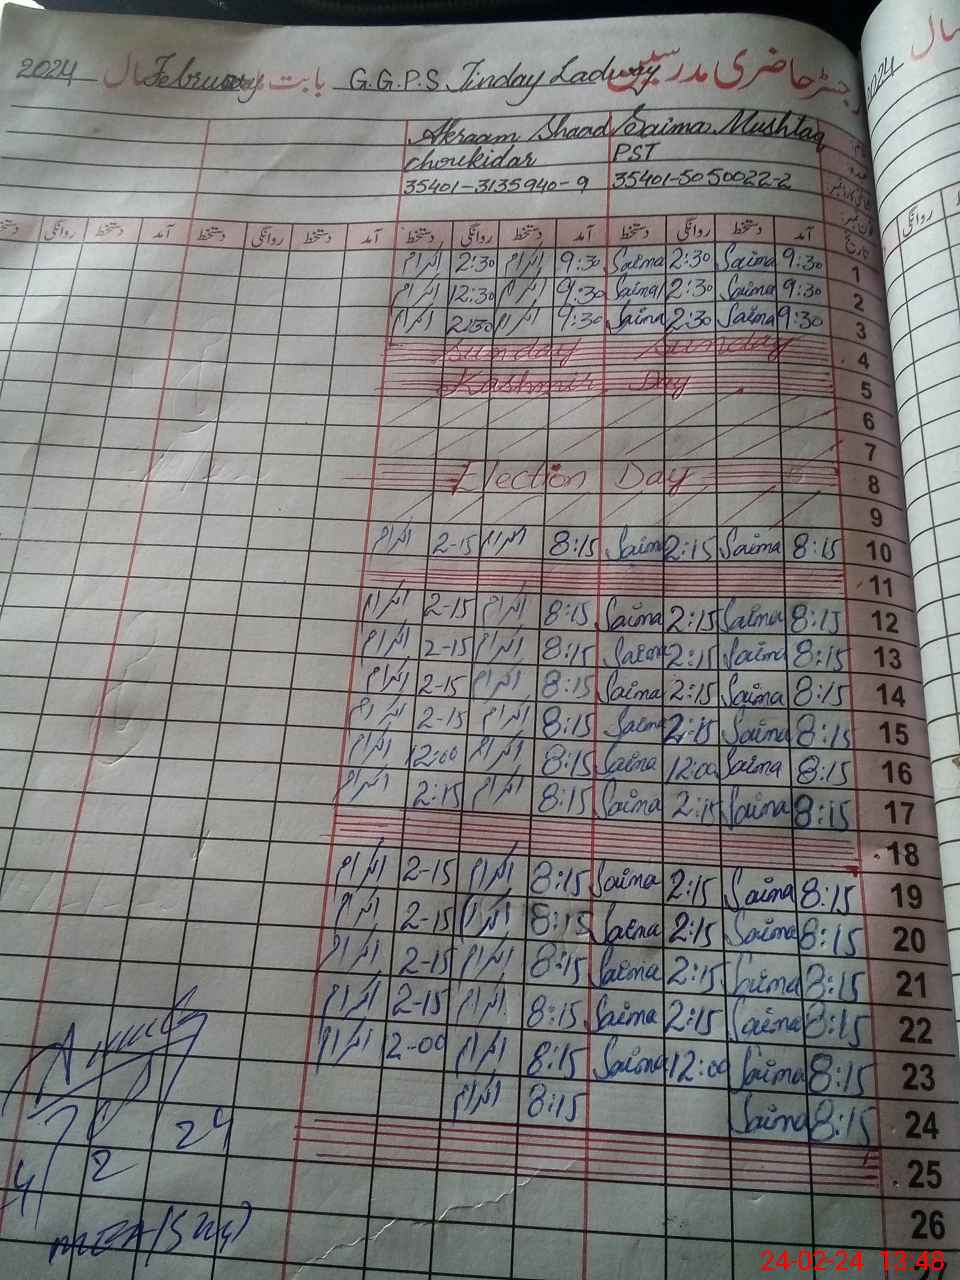 رجسٹر حاضری مدرسین G.G.P.S. Jinday Ladway بابت February سال 2024
Akraam Shaad Saima Mushtaq
Choukidar PST
35401-3135940-9 35401-5050022-2
دستخط روانگی دستخط آمد دستخط روانگی دستخط آمد دستخط روانگی دستخط آمد تاریخ
اکرام 2:30 اکرام 9:30 Saima 2:30 Saima 9:30 1
اکرام 12:30 اکرام 9:30 Saima 2:30 Saima 9:30 2
اکرام 2:30 اکرام 9:30 Saima 2:30 Saima 9:30 3
Sunday Sunday 4
Kashmir Day 5
6
7
Election Day 8
9
اکرام 2-15 اکرام 8:15 Saima 2:15 Saima 8:15 10
11
اکرام 2-15 اکرام 8:15 Saima 2:15 Saima 8:15 12
اکرام 2-15 اکرام 8:15 Saima 2:15 Saima 8:15 13
اکرام 2-15 اکرام 8:15 Saima 2:15 Saima 8:15 14
اکرام 2-15 اکرام 8:15 Saima 2:15 Saima 8:15 15
اکرام 12:00 اکرام 8:15 Saima 12:00 Saima 8:15 16
اکرام 2:15 اکرام 8:15 Saima 2:15 Saima 8:15 17
18
اکرام 2-15 اکرام 8:15 Saima 2:15 Saima 8:15 19
اکرام 2-15 اکرام 8:15 Saima 2:15 Saima 8:15 20
اکرام 2-15 اکرام 8:15 Saima 2:15 Saima 8:15 21
اکرام 2-15 اکرام 8:15 Saima 2:15 Saima 8:15 22
اکرام 2-00 اکرام 8:15 Saima 12:00 Saima 8:15 23
اکرام 8:15 Saima 8:15 24
25
26
2 24
MEA
24-02-24 13:48
سال
2024
روانگی